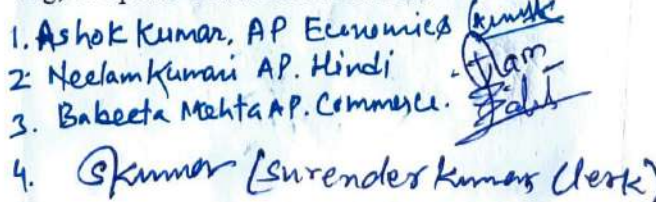 1. Ashok Kumar, AP Economics
2. Neelam Kumari AP. Hindi
3. Babeeta Mehta AP. Commerce.
4. SKumar (Surender Kumar Clerk)